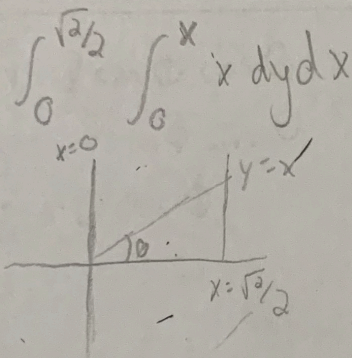 ∫₀^{√2/2} ∫₀^x x dy dx
x=0
y=x
θ
x=√2/2